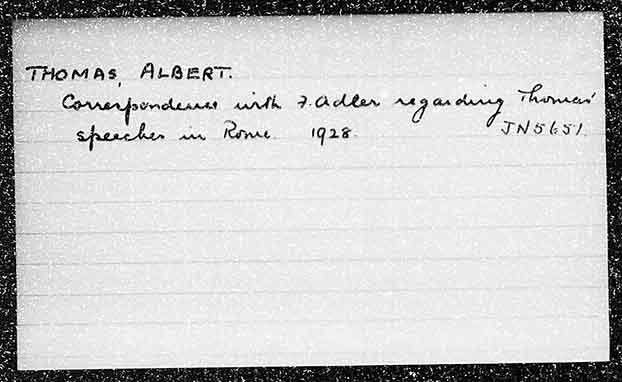 THOMAS, ALBERT.
Correspondence with F. Adler regarding Thomas'
speeches in Rome. 1928. JN5651.